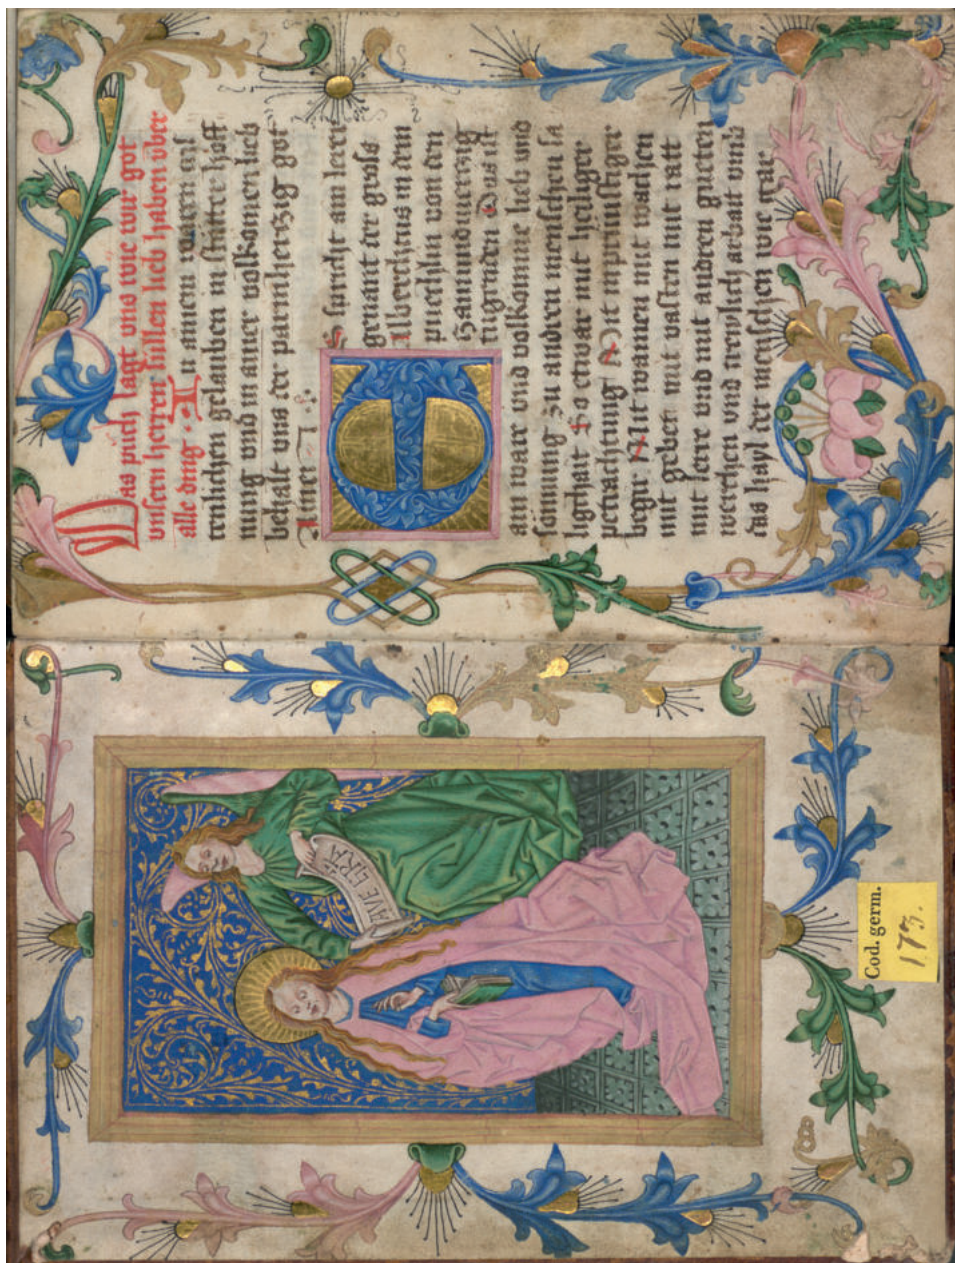 AVE GRA
Cod. germ.
173.
Das puech sagt vns wie wir got
vnsern herren süllen lieb haben über
alle ding · In ainem waren cri
stenlichen gelauben in stätter hoff
nung vnd in ainer volkomen lieb
behalt vns der parmherczig got
Amen
Es spricht ain lerer
genant der gross
Albrechtus in dem
puechlin von den
zwaiundvierzig
tugenden Das ist
ain war vnd volkomne lieb vnd
zu anderen menschen sä
ligchait So etwar mit heiliger
petrachtung Mit inprinstiger
begir Mit wainen mit wachen
mit gebet mit vasten mit ratt
mit lere vnd mit anderen gueten
werchen vnd trewlich arbaitt vmb
das hayl der menschen wie gar